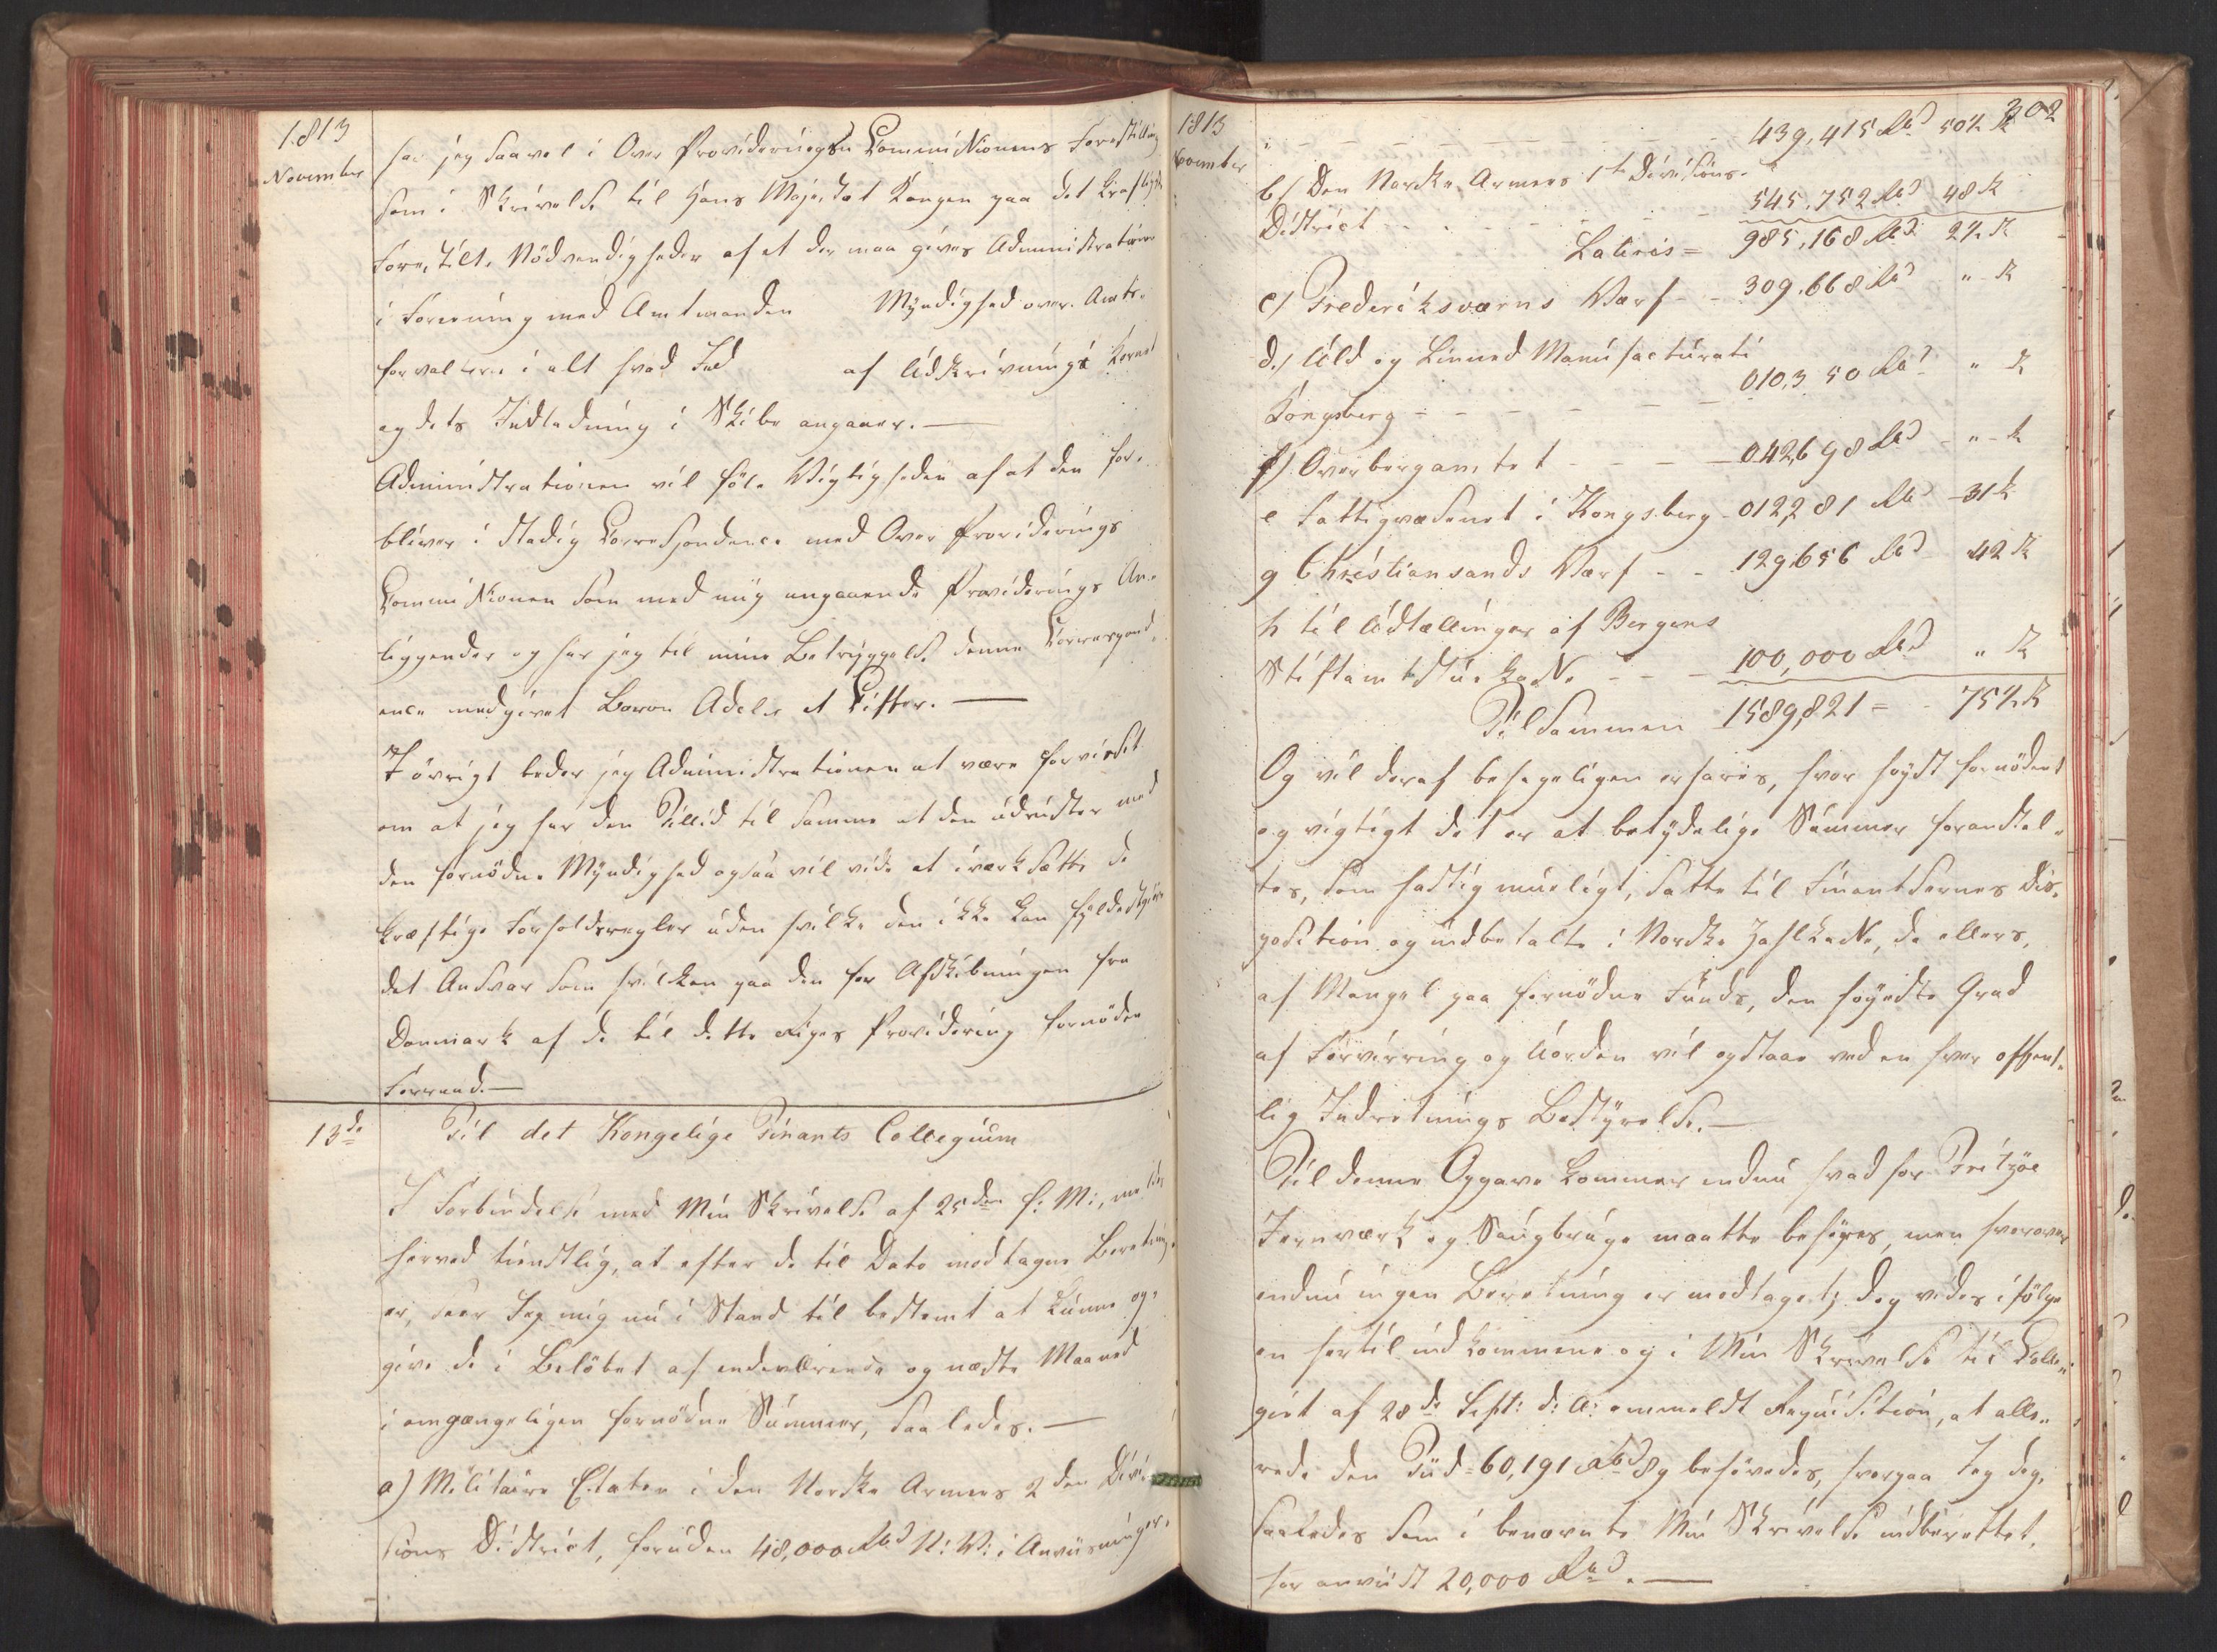 1813
November
har jeg saavel i Over Provideringsn Commissionens Forestilling
som i Skrivelse til Hans Majestet Kongen paa det kraftigste
forestilt Nödvendigheden af at der maa gives Administrationen
i Forening med Amtmanden Myndighed over Amts-
forvaltere i alt hvad Ind af Udskrivnings Kornet
og dets Indladning i Skibe angaaer. —
Administrationen vil föle Vigtigheden af at den for-
bliver i stadig Correspondence med Over Providerings
Commissionen som med mig angaaende Providerings An-
liggender og har jeg til min Betryggelse denne Correspond-
ence medgivet Baron Adeler et Ciffer. —
I övrigt beder jeg Administrationen at være forvisset
om at jeg har den Tillid til samme at den udrustet med
den fornödne Myndighed ogsaa vil vide at iværksætte de
kraftige Forholdsregler uden hvilke den ikke kan fyldestgiöre
det Ansvar som hvilken paa den for Afskibningen fra
Danmark af de til dette Riges Providering fornöden
Forraad. —
13de
Til det Kongelige Finants Collegium
I Forbindelse med Min Skrivelse af 25den f: M:, meldes
herved tienstlig, at efter de til Dato modtagne Beretning-
er, seer Jeg mig nu i Stand til bestemt at kunne op-
give de i Belöbet af indeværende og næste Maaned
uomgængeligen fornödne Summer, saaledes. —
a) Militaire Etaten i den Norske Armees 2den Divi-
sions District, foruden 48,000 Rbd N: V: i Anviisninger.
1813
November
302
" - - - - - - - 439,415 Rbd 50½ ß
b) Den Norske Armees 1te Divisions-
District - - - - - 545,752 Rbd 48 ß
Lateris = 985,168 Rbd 2½ ß
c) Frederiksværns Værf - - 309,668 Rbd " ß
d.) Uld og Linned Manufacturati
Kongsberg - - - - - - 010,350 Rbd " ß
f) Overbergamtet - - - - 042,698 Rbd - " - ß
e Fattigvæsenet i Kongsberg - 012,281 Rbd - 31 ß
g Christiansands Værf - - 129,656 Rbd 42 ß
h til Udtællinger af Bergens
Stiftamtstue Kasse - - - 100,000 Rbd " ß
Tilsammen 1589,821 = - 75½ ß
Og vil deraf behageligen erfares, hvor höyst fornödent
og vigtigt det er at betydelige Summer foranstal-
tes, som hastig mueligt, satte til Finantsernes Dis-
position og indbetalte i Norske Zahlkasse, da ellers,
af Mangel paa fornödne Fonds, den höyeste Grad
af Forvirring og Uorden vil opstaae ved en hver offent-
lig Indretnings Bestyrelse. —
Til denne Opgave kommer endnu hvad for Fritzöe
Jernværk og Saugbruge maatte behöves, men hvorover
endnu ingen Beretning er modtaget; dog vides ifölge
en hertil indkommene og i Min Skrivelse til Colle-
giet af 28de Sept: d: A: ommeldt Requisition, at alle-
rede den Tiid = 60,191 Rbd 8 ß behövedes, hvorpaa Jeg dog,
saaledes som i benævnte Min Skrivelse indberettet,
har anviist 20,000 Rbd. —